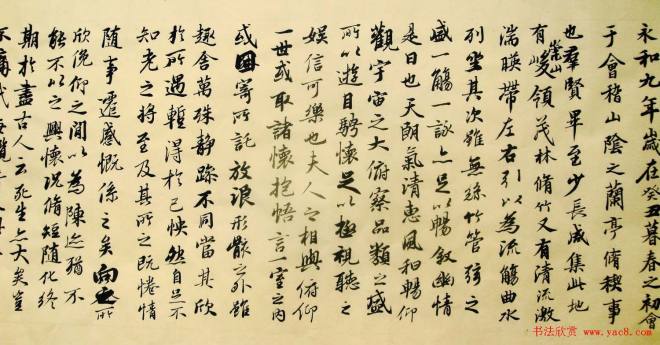 永和九年歲在癸丑暮春之初會
于會稽山陰之蘭亭脩稧事
也羣賢畢至少長咸集此地
有崇山峻領茂林脩竹又有清流激
湍暎帶左右引以為流觴曲水
列坐其次雖無絲竹管弦之
盛一觴一詠亦足以暢敘幽情
是日也天朗氣清惠風和暢仰
觀宇宙之大俯察品類之盛
所以遊目騁懷足以極視聽之
娛信可樂也夫人之相與俯仰
一世或取諸懷抱悟言一室之內
或因寄所託放浪形骸之外雖
趣舍萬殊靜躁不同當其欣
於所遇暫得於己怏然自足不
知老之將至及其所之既惓情
隨事遷感慨係之矣向之所
欣俛仰之間以為陳迹猶不
能不以之興懷況脩短隨化終
期於盡古人云死生亦大矣豈
不痛哉每覽
书法欣赏 http://www.yac8.com